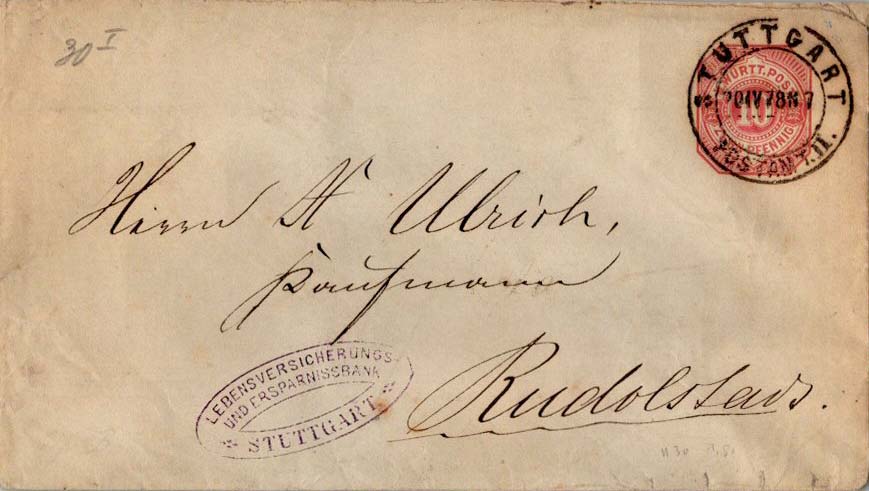 30 I
STUTTGART
20 IV 78 N 7
POSTAMT II.
WÜRTT. POST
10
ZEHN PFENNIG
Herrn A Ulrich,
Kaufmann
Rudolstadt.
LEBENSVERSICHERUNGS-
UND ERSPARNISSBANK
STUTTGART